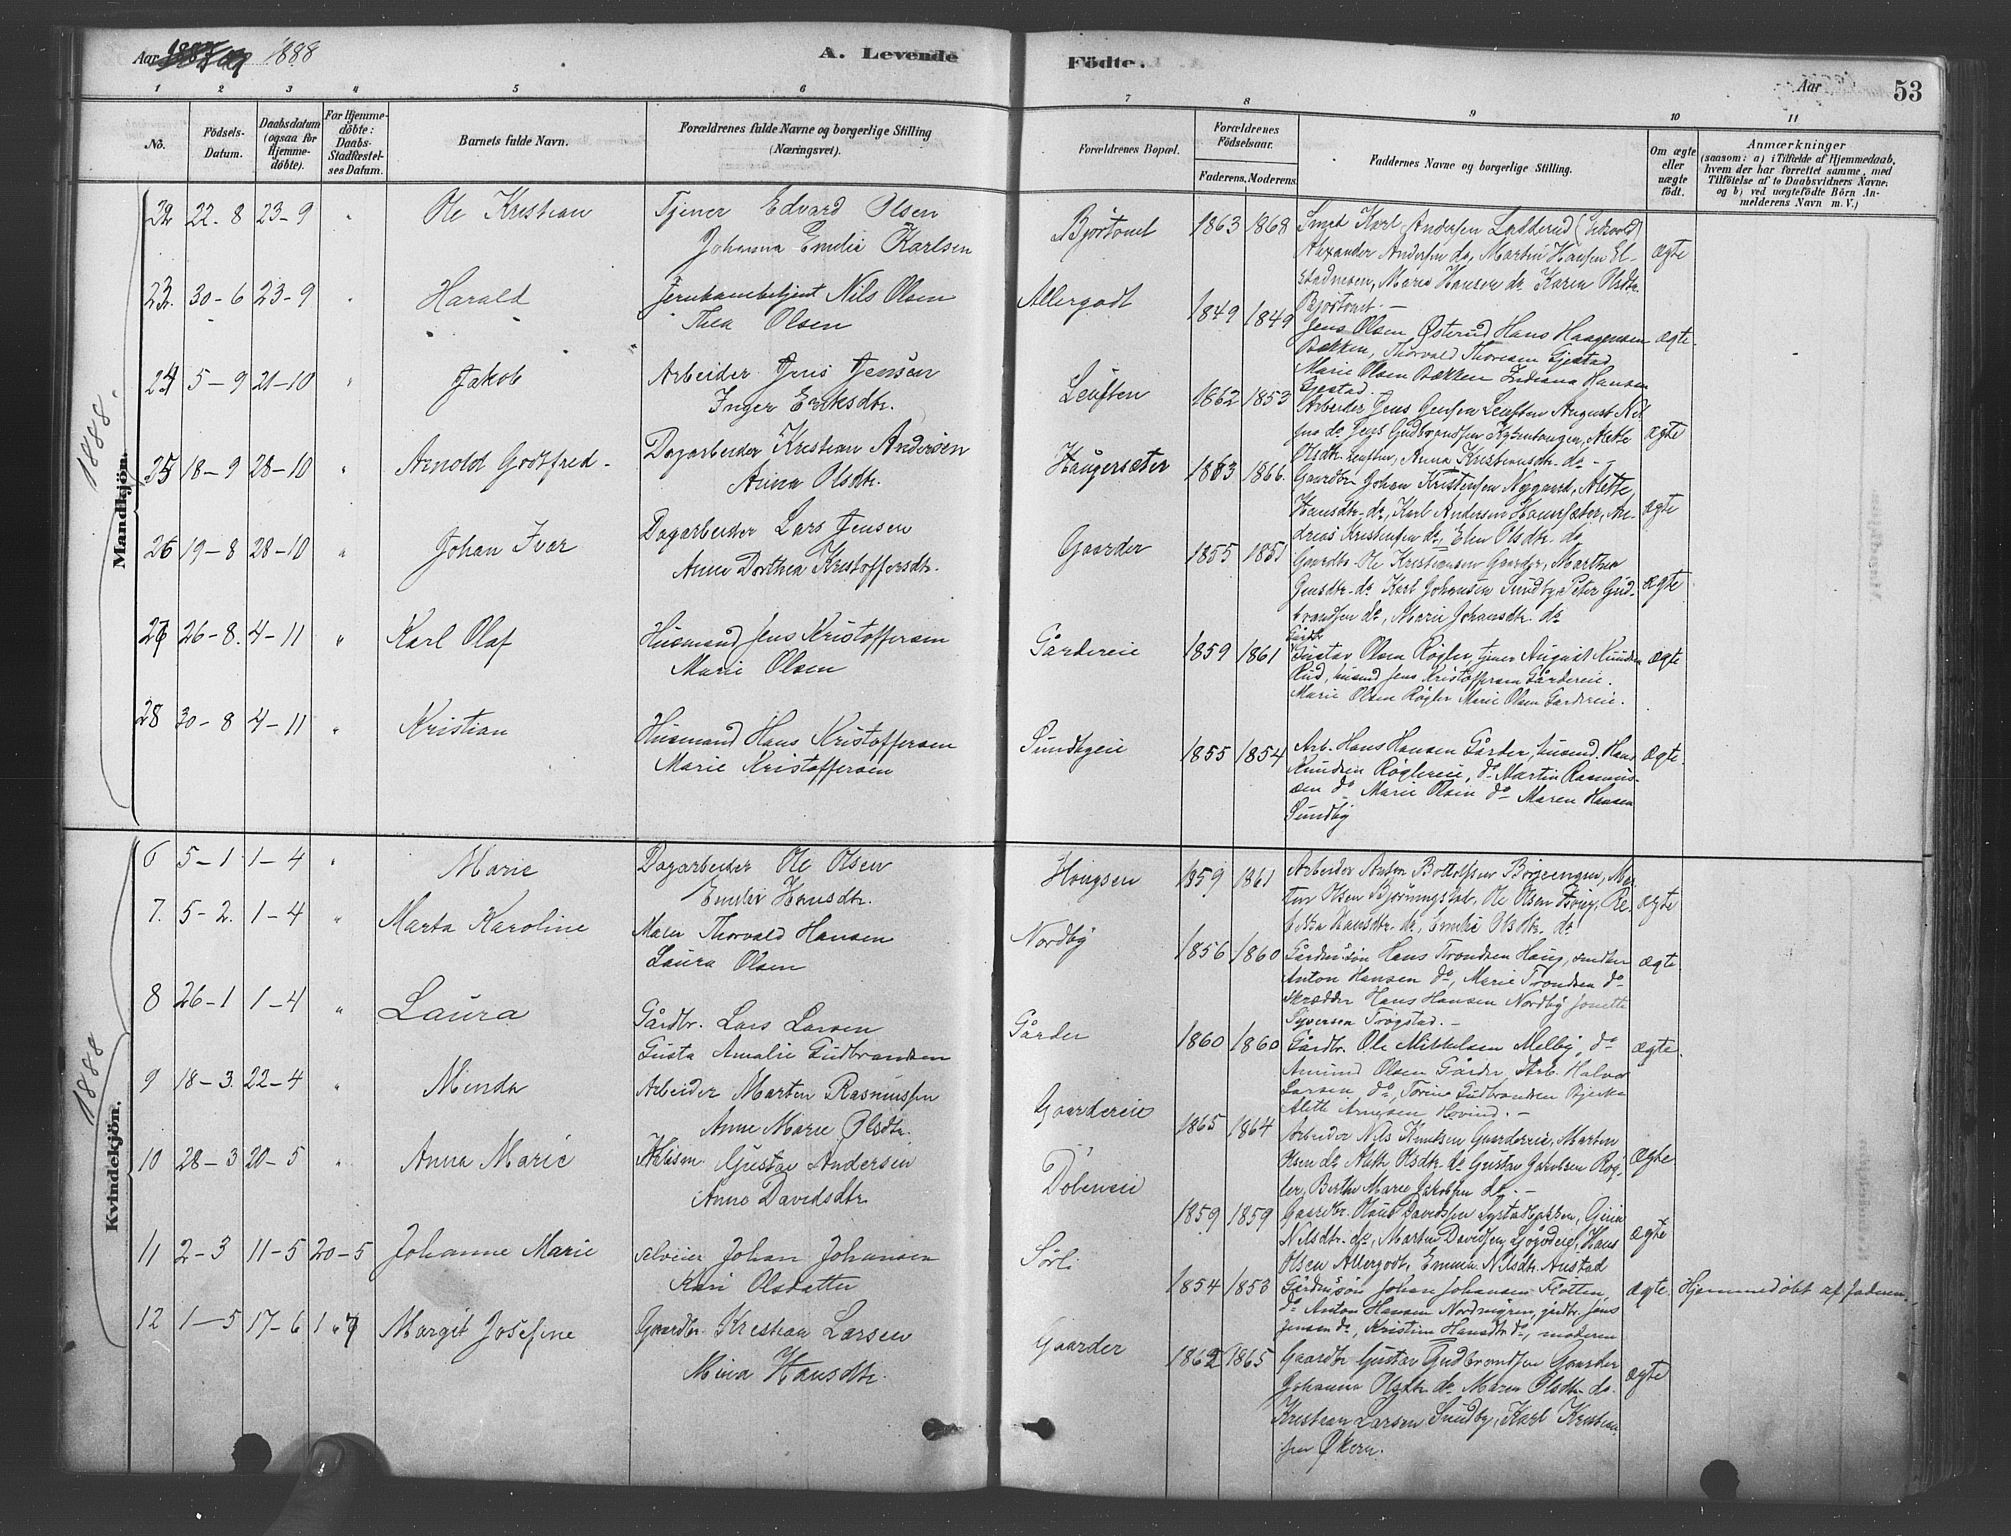 Aar 1888
A. Levende
Födte.
Aar
53
1 2 3 4 5 6 7 8 9 10 11
No.
Födsels-
Datum.
Daabsdatum
(ogsaa for
Hjemme-
döbte).
For Hjemme-
döbte:
Daabs-
Stadfæstel-
ses Datum.
Barnets fulde Navn.
Forældrenes fulde Navne og borgerlige Stilling
(Næringsvei).
Forældrenes Bopæl.
Forældrenes
Födselsaar.
Faderens. Moderens.
Faddernes Navne og borgerlige Stilling.
Om ægte
eller
uægte
födt.
Anmærkninger
(saasom: a) i Tilfælde af Hjemmedaab,
hvem der har forrettet samme, med
Tilföielse af to Daabsvidners Navne;
og b) ved uægtefödte Börn An-
melderens Navn m. V.)
1888.
Mandkjön.
22 22-8 23-9 " Ole Kristian Tjener Edvard Olsen
Johanna Emilie Karlsen
1863 1868 Smed Karl Andersen
Alexander Andersen do, Martin Hansen El-
stadneien, Marie Hansen do Karen Olsdtr.
ægte
23. 30-6 23-9 " Harald Nils Olsen
Thea Olsen
Allergodt 1849 1849
Jens Olsen Østerud Hans Haagensen
Bækken, Thorvald Thoresen Gjestad
Marie Olsen Bækken Indiana Hansen
Gjestad.
ægte.
24 5-9 21-10 " Jakob Arbeider Jens Jensen
Inger Eriksdtr.
1862 1853
Arbeider Jens Jensen August Nil-
sen do Jens Gudbrandsen Alette
Olsdtr. Anna Kristiansdtr. do -
ægte
25 18-9 28-10 " Arnold Godtfred - Dagarbeider Kristian Andersen
Anna Olsdtr.
Haugersæter 1863 1866.
Gaardbr Johan Kristensen Nygaard, Alette
Hansdtr. do, Karl Andersen An-
dreas Kristensen do, Elin Olsdtr. do
ægte
26 19-8 28-10 " Johan Ivar Dagarbeider Lars Jensen
Anne Dorthea Kristoffersdtr.
Gaarder 1855 1851
Gaardbr. Ole Kristiansen Gaarder, Marthea
Jensdtr. do Karl Johansen Sundby Peter Gud-
brandsen do, Marie Johansdtr. do
ægte
27 26-8. 4-11 " Karl Olaf Husmand Jens Kristoffersen
Marie Olsen
Gårdereie 1859 1861
Gårdbr
Gustav Olsen Røgler, tjener August Knudsen
Rud, husmd Jens Kristoffersen Gårdereie.
Marie Olsen Røgler Marie Olsen Gardereie.
ægte
28 30-8 4-11 " Kristian Husmand Hans Kristoffersen
Marie Kristoffersen
Sundbyeie 1855 1854
Arb. Hans Hansen Gårder, husmd. Hans
Knudsen Røglereie, do Martin Rasmus-
sen do Marie Olsen do Maren Hansen
Sundby
ægte.
1888
Kvindekjön.
6 5-1 1-4 " Marie Dagarbeider Ole Olsen
Emilie Hansdtr.
1859 1861
Arbeider Anton Mar-
tin Olsen Bjørningstad, Ole Olsen Re-
bekka Hansdtr. do, Emilie Olsdtr. do
ægte
7. 5-2. 1-4 " Marta Karoline Maler Thorvald Hansen
Laura Olsen
Nordby 1856 1860
Gårdmsøn Hans Trondsen Haug,
Anton Hansen do, Marie Trondsen do
Skrædder Hans Hansen Nordby Jonette
Syversen Trøgstad. -
ægte.
8 26-1 1-4 " Laura Gårdbr. Lars Larsen
Gusta Amalie Gudbrandsen
Gårder 1860 1860
Gårdbr. Ole Mikkelsen Melby, do
Amund Olsen Gårder Arb. Halvor
Larsen do, Torine Gudbrandsen Bjerke
Aleth Arnesen Hovind. -
ægte.
9 18-3. 22-4 " Minda Arbeider Marten Rasmussen
Anne Marie Olsdtr.
Gaardereie 1865 1864
Arbeider Nils Knutsen Gaardereie, Marten
Olsen do Aleth Olsdtr. do Gustav Jakobsen Røg-
ler, Berthe Marie Jakobsen do. -
ægte
10 28-3 20-5 " Anna Marie Gustav Andersen
Anne Davidsdtr.
1859 1859
Gaardbr. Olaus Davidsen Gina
Nilsdtr. do, Marten Davidsen Hans
Olsen Allergodt, Emma Nilsdtr. Austad
ægte
11 2-3 11-5 20-5 Johanne Marie selveier Johan Johansen
Kari Olsdatter
Sørli 1854 1853
Gårdmsøn Johan Johansen Fløtten,
do Anton Hansen Nordengren, gårdbr. Jens
Jensen do, Kristine Hansdtr. do, moderen
ægte. Hjemmedøbt af
12 1-5 17-6 1 " 7 Margit Josefine Gaardbr. Kristian Larsen
Mina Hansdtr.
Gaarder 1862 1865
Gaardbr Gustav Gudbrandsen Gaarder
Johanna Olsdtr. do Maren Olsdtr. do.
Kristian Larsen Sundby, Karl Kristian-
sen Økern.
ægte